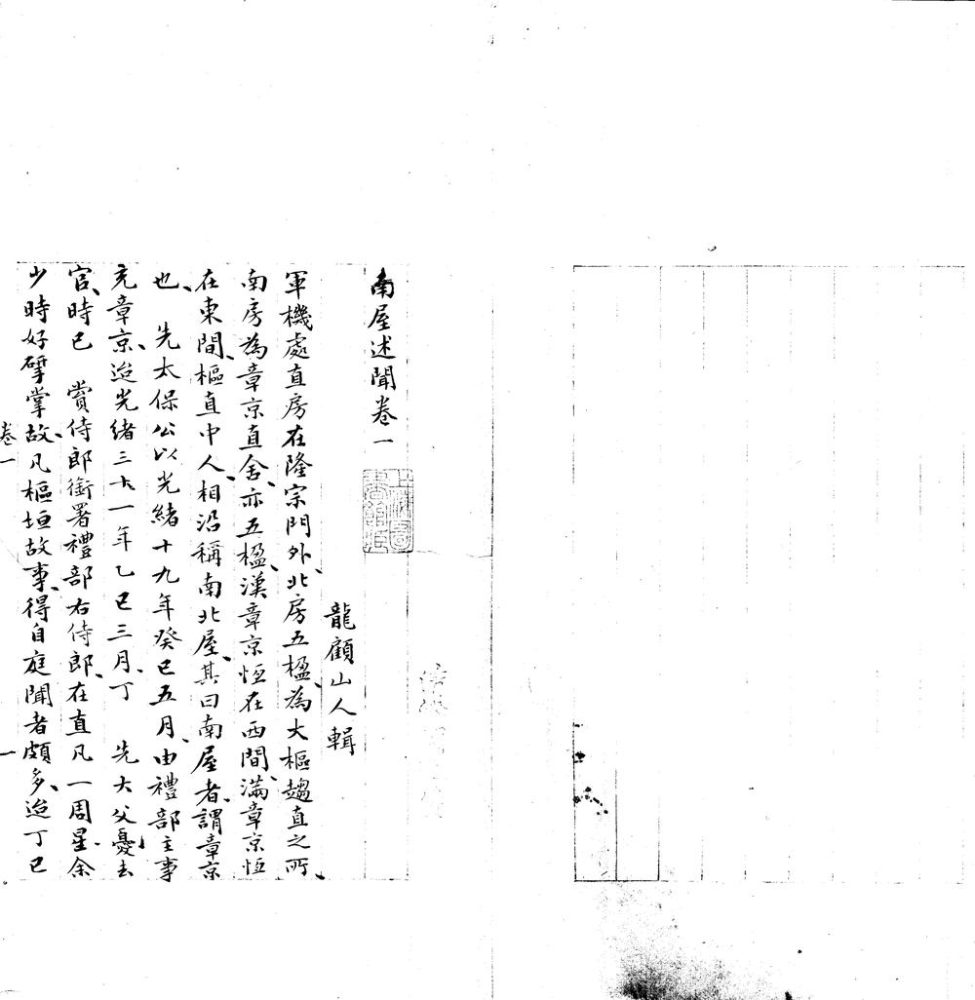 南屋述聞卷一
龍顧山人輯
軍機處直房在隆宗門外、北房五楹、為大樞趨直之所、
南房為章京直舍、亦五楹、漢章京恒在西間、滿章京恒
在東間、樞直中人、相沿稱南北屋、其曰南屋者、謂章京
也、 先太保公以光緒十九年癸巳五月、由禮部主事
充章京、迨光緒三十一年乙巳三月、丁 先大父憂去
官、時已 賞侍郎銜署禮部右侍郎、在直凡一周星、余
少時好掌故、凡樞垣故事、得自庭聞者頗多、迨丁巳
卷一
一
上海圖書館藏